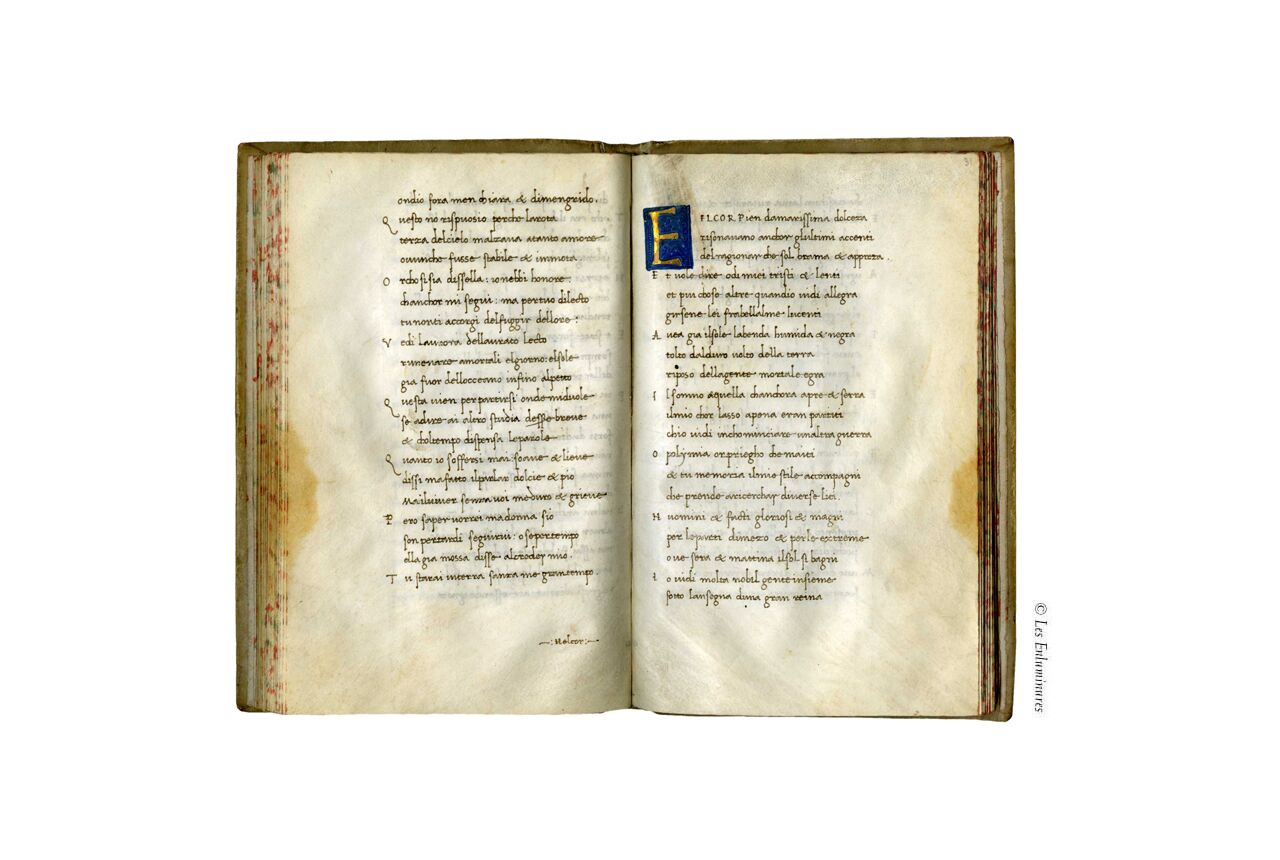 ondio fora men chiara & dimengrido.
Q uesto no rispuosio perche larota
terza delcielo malzava atanto amore
ovunche fusse stabile & immota
O rcho si sia dissella: io nebbi honore
chanchor mi segui: ma per tuo dilecto
tu non ti accorgi delfuggir dellore:
V edi laurora dellaurato lecto
rimenare amortali elgiorno: elsole
gia fuor delloceano infino alpetto
Q uesta vien per partirsi onde miduole
se adire ai altro studia desse breve
& choltempo dispensa leparole
Q uanto io soffersi mai: soave & lieve
dissi mafatto ilparlar dolcie & pio
Mailviver senza voi me duro & grieve
P ero saper vorrei madonna sio
son pertardi seguirui: o sepertempo
ella gia mossa disse alcreder mio.
T u starai interra sanza me grantempo
—: Nelcor :—
31
E ELCOR Pien damarissima dolceza
risonavano anchor glultimi accenti
delragionar che sol brama & appreza.
E t vole dire odi miei tristi & lenti
et piu chose altre quandio vidi allegra
girsene lei frabellalme lucenti
A vea gia ilsole labenda humida & negra
tolto dalduro volto della terra
riposo dellagente mortale egra
I l somno & quella chanchora apre & serra
ilmio chor lasso apena eran partiti
chio vidi inchominciare unaltra guerra
O polymia or priegho che maiti
& tu memoria ilmie stile accompagni
che prende aricerchar diverse liti.
H uomini & facti gloriosi & magni
per leparti dimezo & perle extreme
ove sera & mattina ilsol si bagni
I o vidi molta nobil gente insieme
sotto lansegna duna gran reina
© Les Enluminures